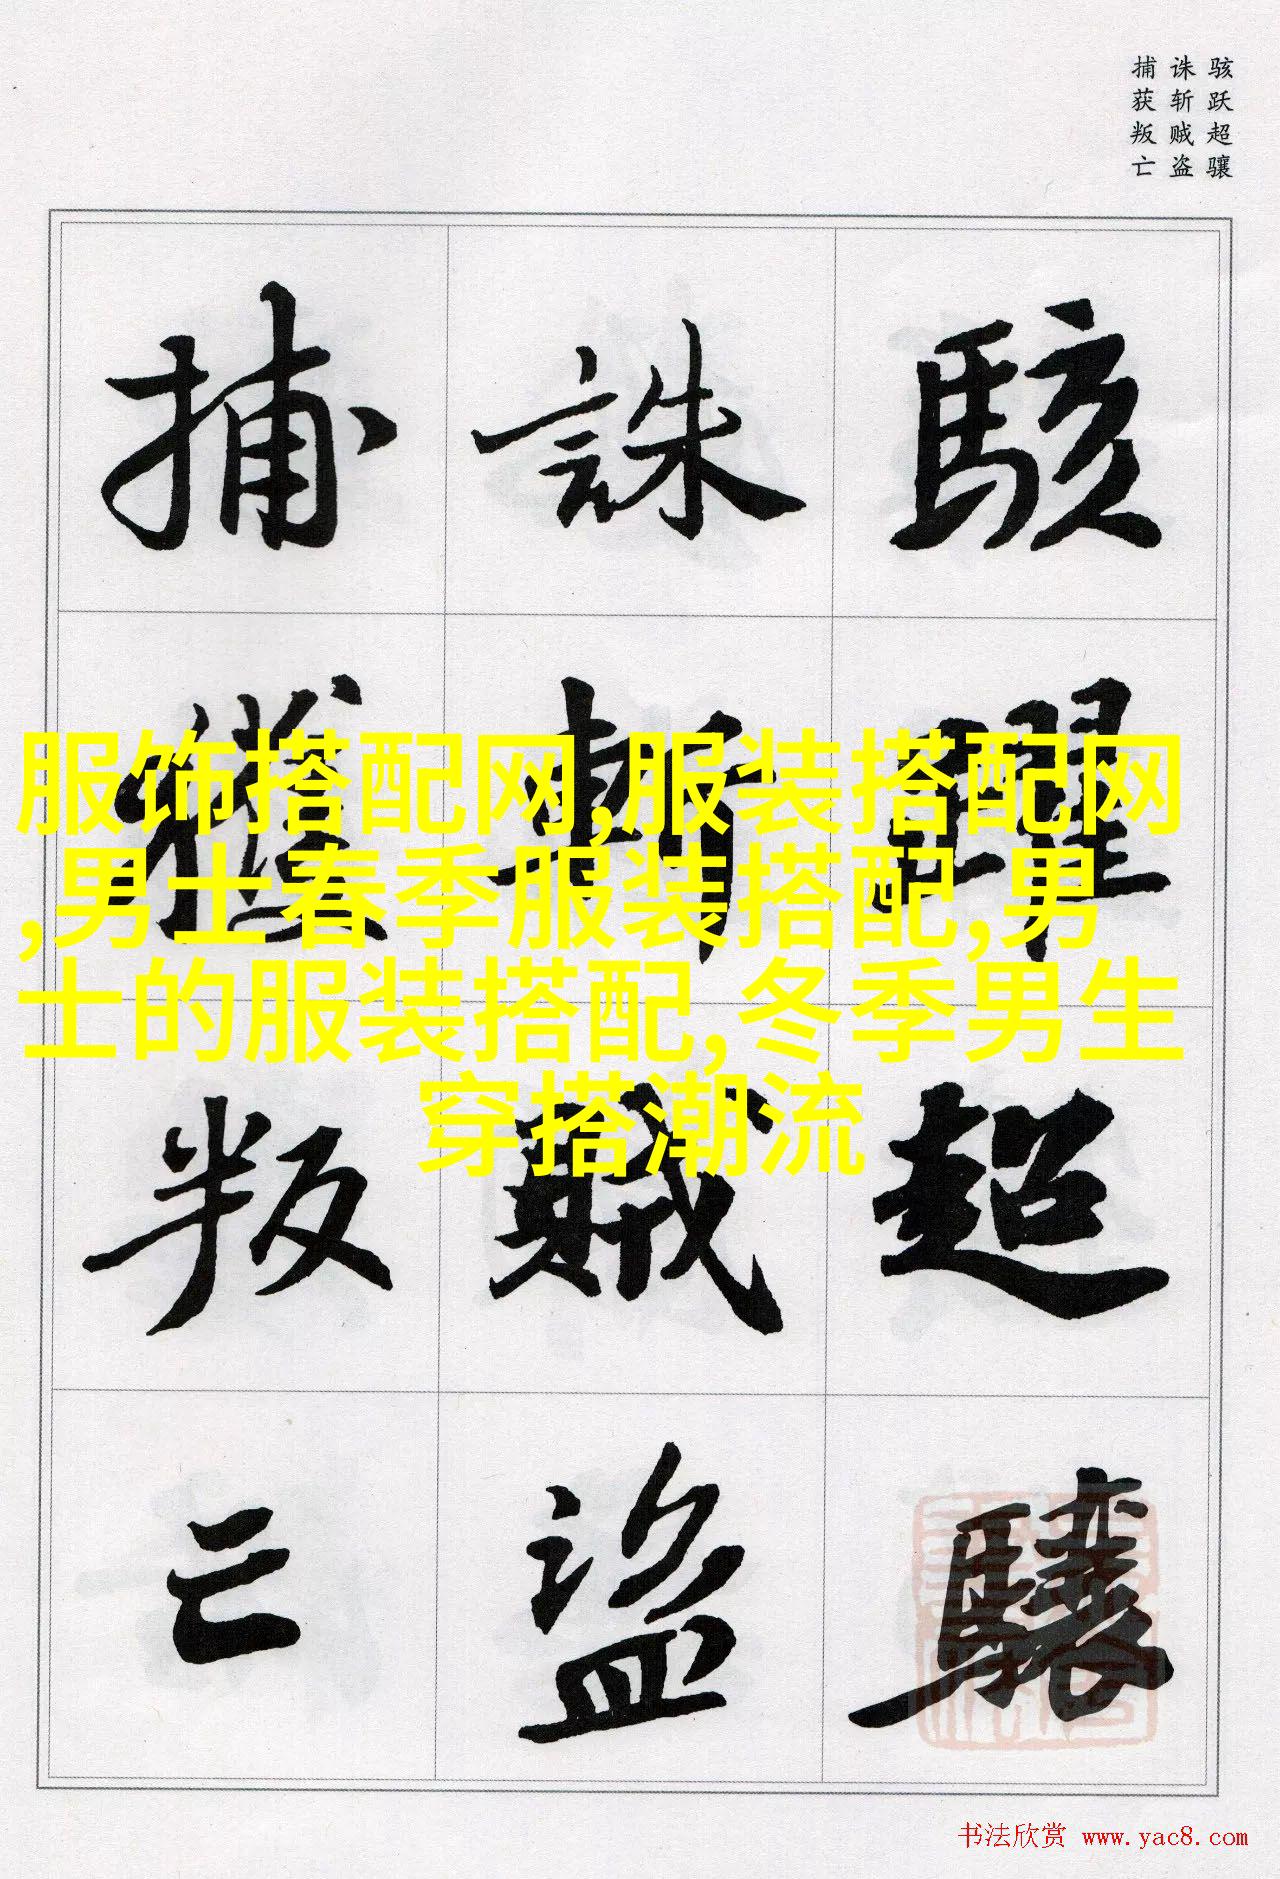 骇跃超骧
诛斩贼盗
捕获叛亡
駭躍超驤
誅斬賊盜
捕獲叛亡
服饰搭配网,服装搭配网
,男士春季服装搭配,男
士的服装搭配,冬季男生
穿搭潮流
书法欣赏 www.yac8.com